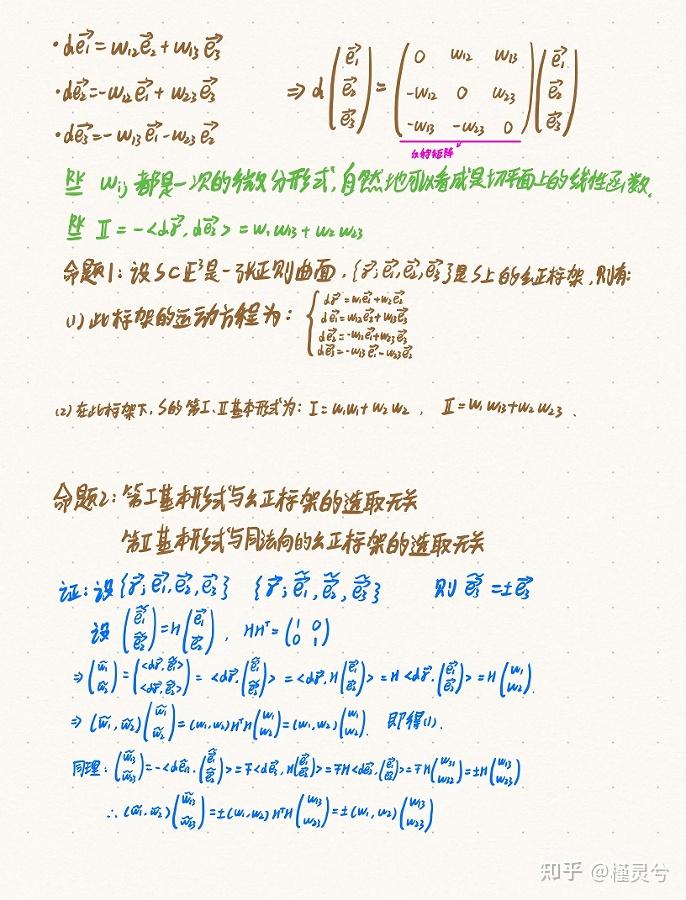 · de₁⃗ = w₁₂e₂⃗ + w₁₃e₃⃗
· de₂⃗ = -w₁₂e₁⃗ + w₂₃e₃⃗
· de₃⃗ = -w₁₃e₁⃗ - w₂₃e₂⃗
⇒ d(e₁⃗ e₂⃗ e₃⃗) = (0 w₁₂ w₁₃ -w₁₂ 0 w₂₃ -w₁₃ -w₂₃ 0)(e₁⃗ e₂⃗ e₃⃗)
反称矩阵
RK wij 都是一次的微分形式,自然地可以看成是切平面上的线性函数.
RK Ⅱ = -<dr⃗, de₃⃗> = w₁w₁₃ + w₂w₂₃
命题1:设S⊂E³是一张正则曲面,{r⃗;e₁⃗,e₂⃗,e₃⃗}是S上的幺正标架,则有:
(1)此标架的运动方程为:
dr⃗ = w₁e₁⃗ + w₂e₂⃗
de₁⃗ = w₁₂e₂⃗ + w₁₃e₃⃗
de₂⃗ = -w₁₂e₁⃗ + w₂₃e₃⃗
de₃⃗ = -w₁₃e₁⃗ - w₂₃e₂⃗
(2)在此标架下,S的第Ⅰ、Ⅱ基本形式为:Ⅰ=w₁w₁+w₂w₂ , Ⅱ=w₁w₁₃+w₂w₂₃ .
命题2:第Ⅰ基本形式与幺正标架的选取无关
第Ⅱ基本形式与同法向的幺正标架的选取无关
证:设{r⃗;e₁⃗,e₂⃗,e₃⃗} {r⃗;ẽ₁⃗,ẽ₂⃗,ẽ₃⃗} 则 ẽ₃⃗=±e₃⃗
设 (ẽ₁⃗ ẽ₂⃗) = H(e₁⃗ e₂⃗) , HHᵀ = (1 0 0 1)
⇒ (w̃₁ w̃₂) = (<dr⃗,ẽ₁⃗> <dr⃗,ẽ₂⃗>) = <dr⃗,(ẽ₁⃗ ẽ₂⃗)> = <dr⃗,H(e₁⃗ e₂⃗)> = H<dr⃗,(e₁⃗ e₂⃗)> = H(w₁ w₂).
⇒ (w̃₁,w̃₂)(w̃₁ w̃₂) = (w₁,w₂)HᵀH(w₁ w₂) = (w₁,w₂)(w₁ w₂). 即得(1).
同理: (w̃₁₃ w̃₂₃) = -<dẽ₃⃗,(ẽ₁⃗ ẽ₂⃗)> = ∓<de₃⃗,H(e₁⃗ e₂⃗)> = ∓H<de₃⃗,(e₁⃗ e₂⃗)> = ∓H(w₃₁ w₃₂) = ±H(w₁₃ w₂₃)
∴ (w̃₁,w̃₂)(w̃₁₃ w̃₂₃) = ±(w₁,w₂)HᵀH(w₁₃ w₂₃) = ±(w₁,w₂)(w₁₃ w₂₃)
知乎 @槿灵兮